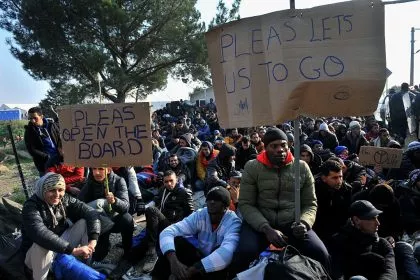 PLEAS LETS
US TO GO
PLEAS
OPEN THE
BOARD